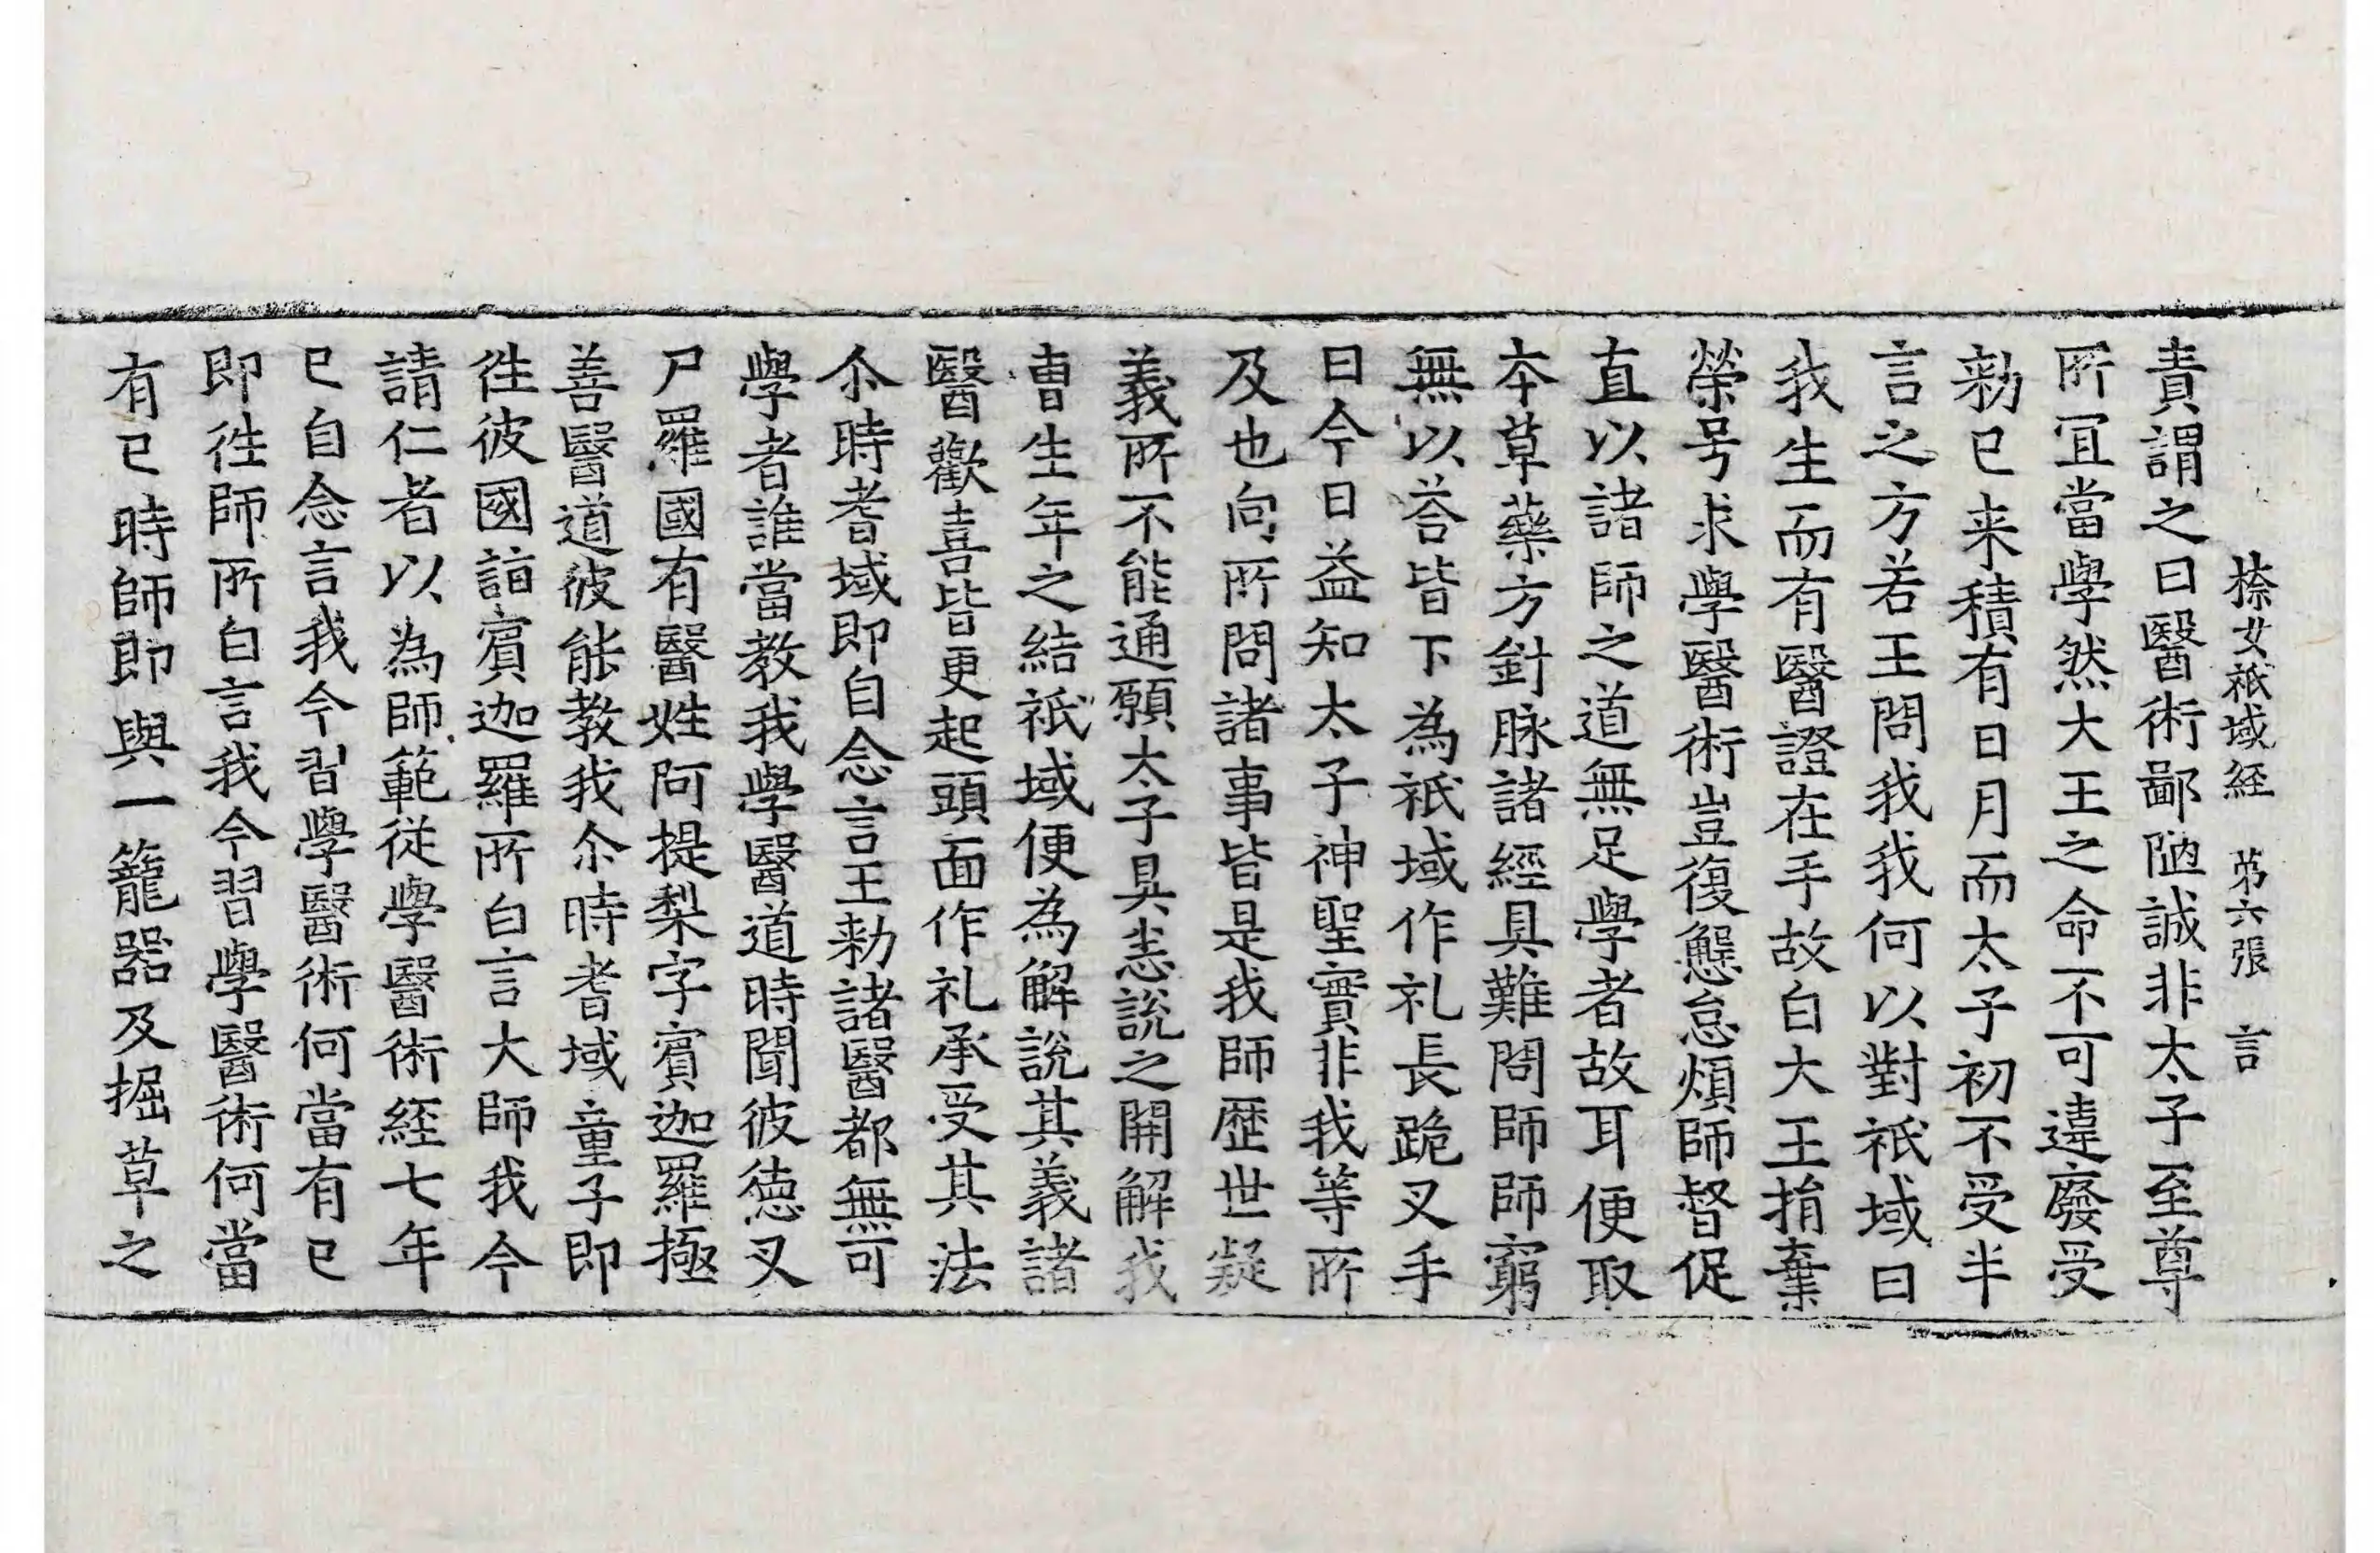 㮈女祇域経　苐六張　言
責謂之曰醫術鄙陋誠非太子至尊
所冝當學然大王之命不可違廢受
勑已来積有日月而太子初不受半
言之方若王問我我何以對祇域曰
我生而有醫證在手故白大王捐棄
榮号求學醫術豈復懈怠煩師督促
直以諸師之道無足學者故耳便取
夲草藥方針脉諸經具難問師師窮
無以荅皆下為祇域作礼長跪叉手
曰今日益知太子神聖實非我等所
及也向所問諸事皆是我師歴世疑
義所不能通願太子具悉說之開解我
曺生年之結祇域便為解說其義諸
醫歡喜皆更起頭面作礼承受其法
尒時耆域即自念言王勑諸醫都無可
學者誰當教我學醫道時聞彼徳叉
尸羅國有醫姓阿提梨字賔迦羅極
善醫道彼能教我尒時耆域童子即
徃彼國詣賔迦羅所白言大師我今
請仁者以為師範從學醫術経七年
已自念言我今習學醫術何當有已
即徃師所白言我今習學醫術何當
有已時師即與一籠器及掘草之